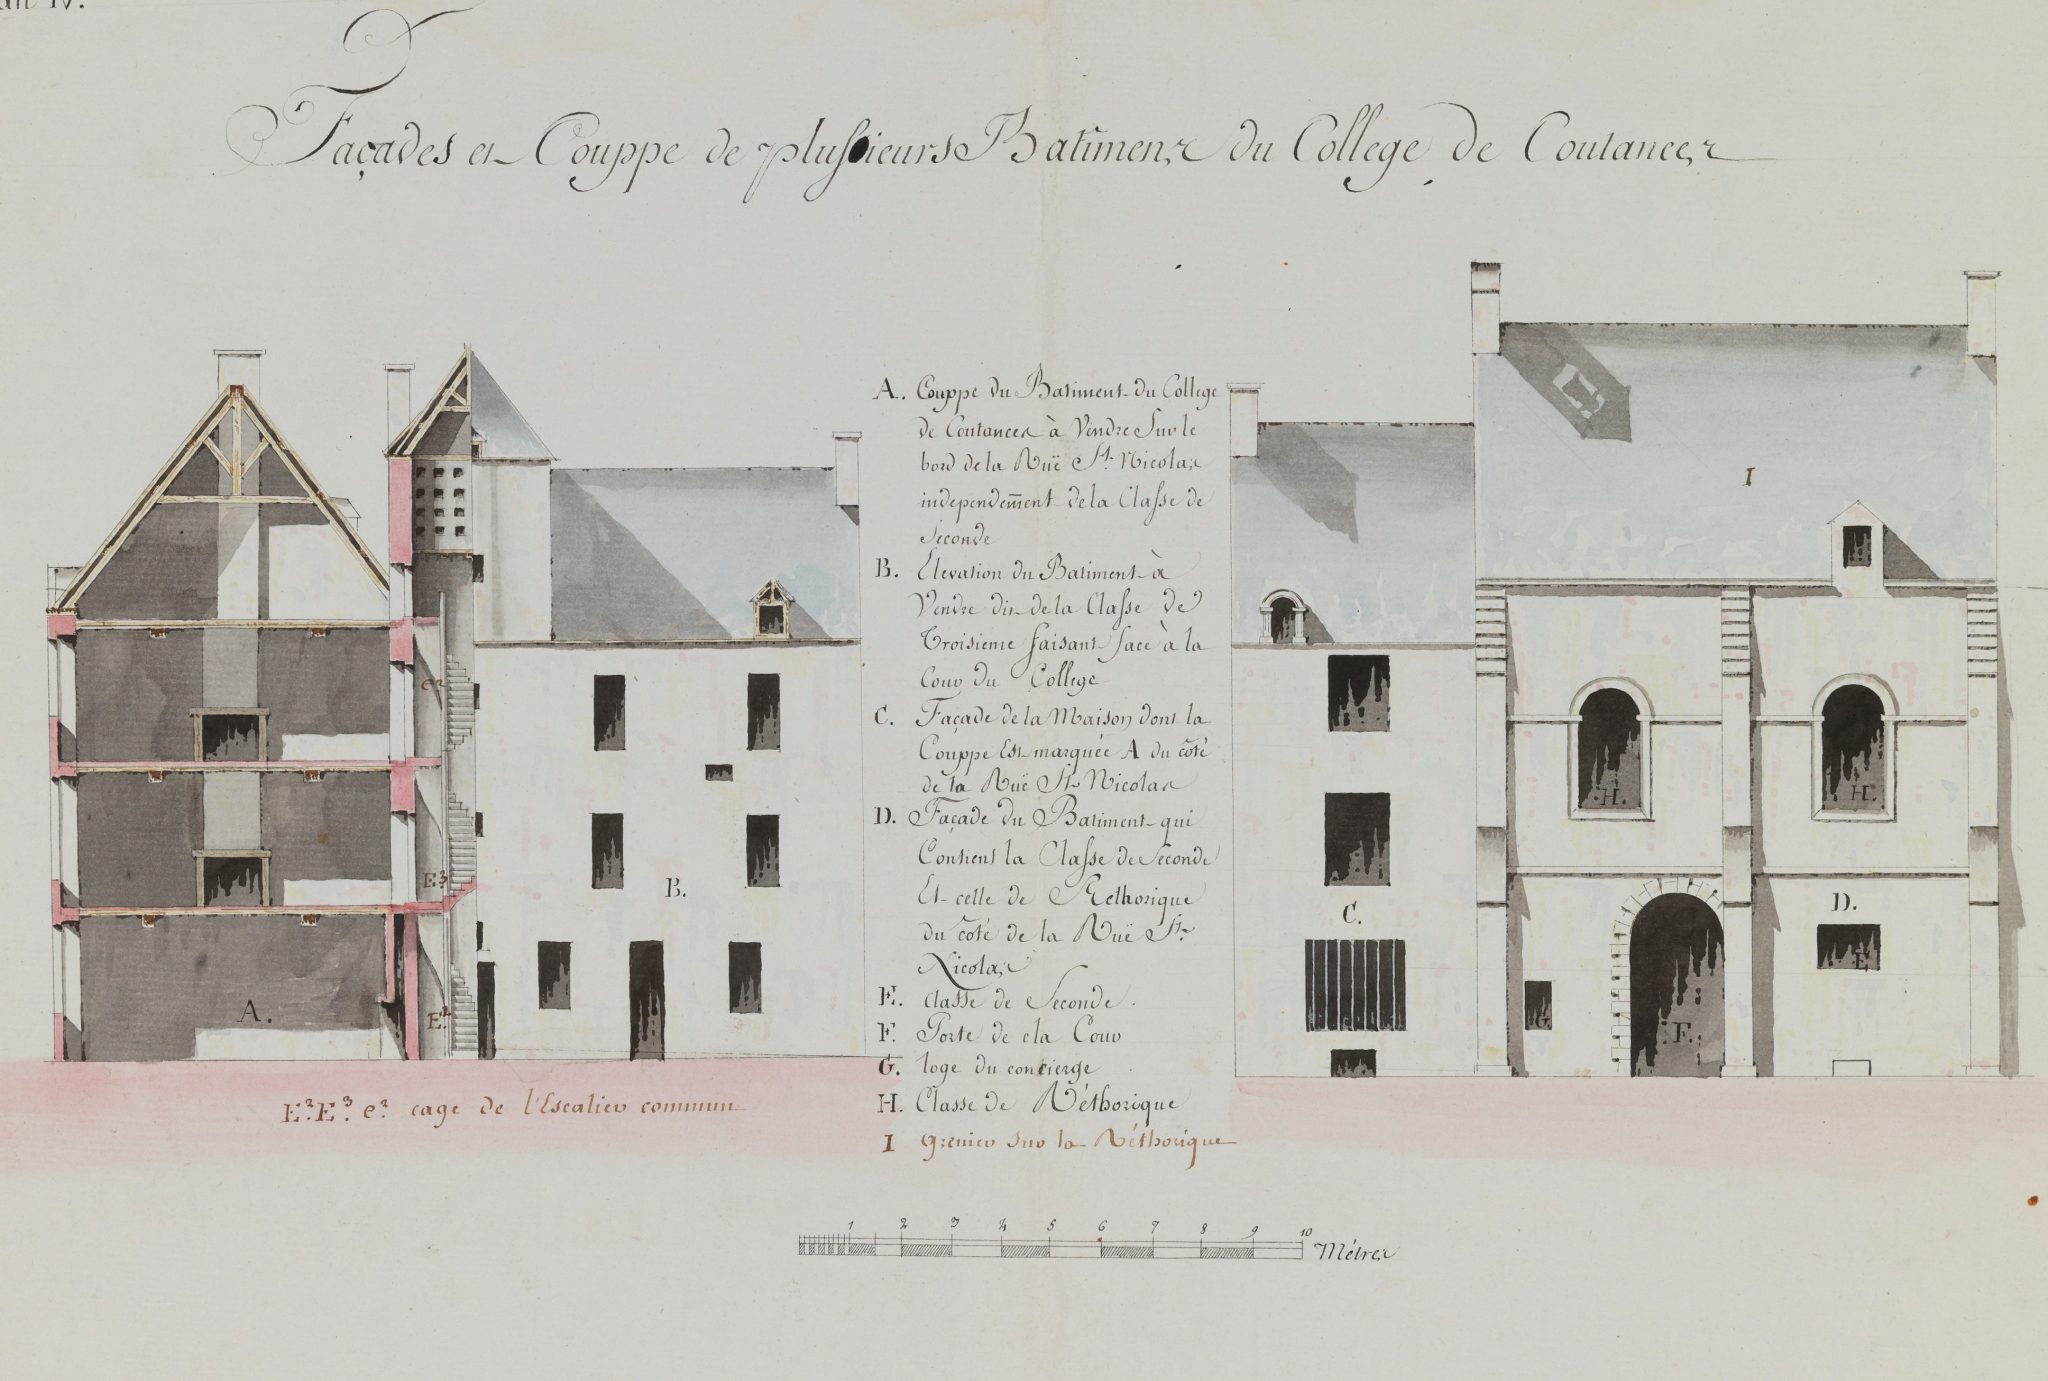 an IV.
Façades et Couppe de plusieurs Batimens du College de Coutances
A. Couppe du Batiment du College
de Coutances à Vendre Sur le
bord de la Ruë St. Nicolas
independem̄ent de la Classe de
Seconde
B. Elevation du Batiment à
Vendre dit de la Classe de
Troisieme faisant face à la
Cour du College
C. Façade de la Maison dont la
Couppe Est marquée A du côté
de la Ruë St Nicolas
D. Façade du Batiment qui
Contient la Classe de Seconde
Et celle de Rethorique
du côté de la Ruë St.
Nicolas
E. Classe de Seconde.
F. Porte de cla Cour
G. loge du concierge
H. Classe de Réthorique
I Grenier sur la Réthorique
e²
E³
A.
E²
B.
C.
I
H.
H.
D.
E
G
F.
E².E³. e². cage de l'Escalier commun
1 2 3 4 5 6 7 8 9 10 Métres